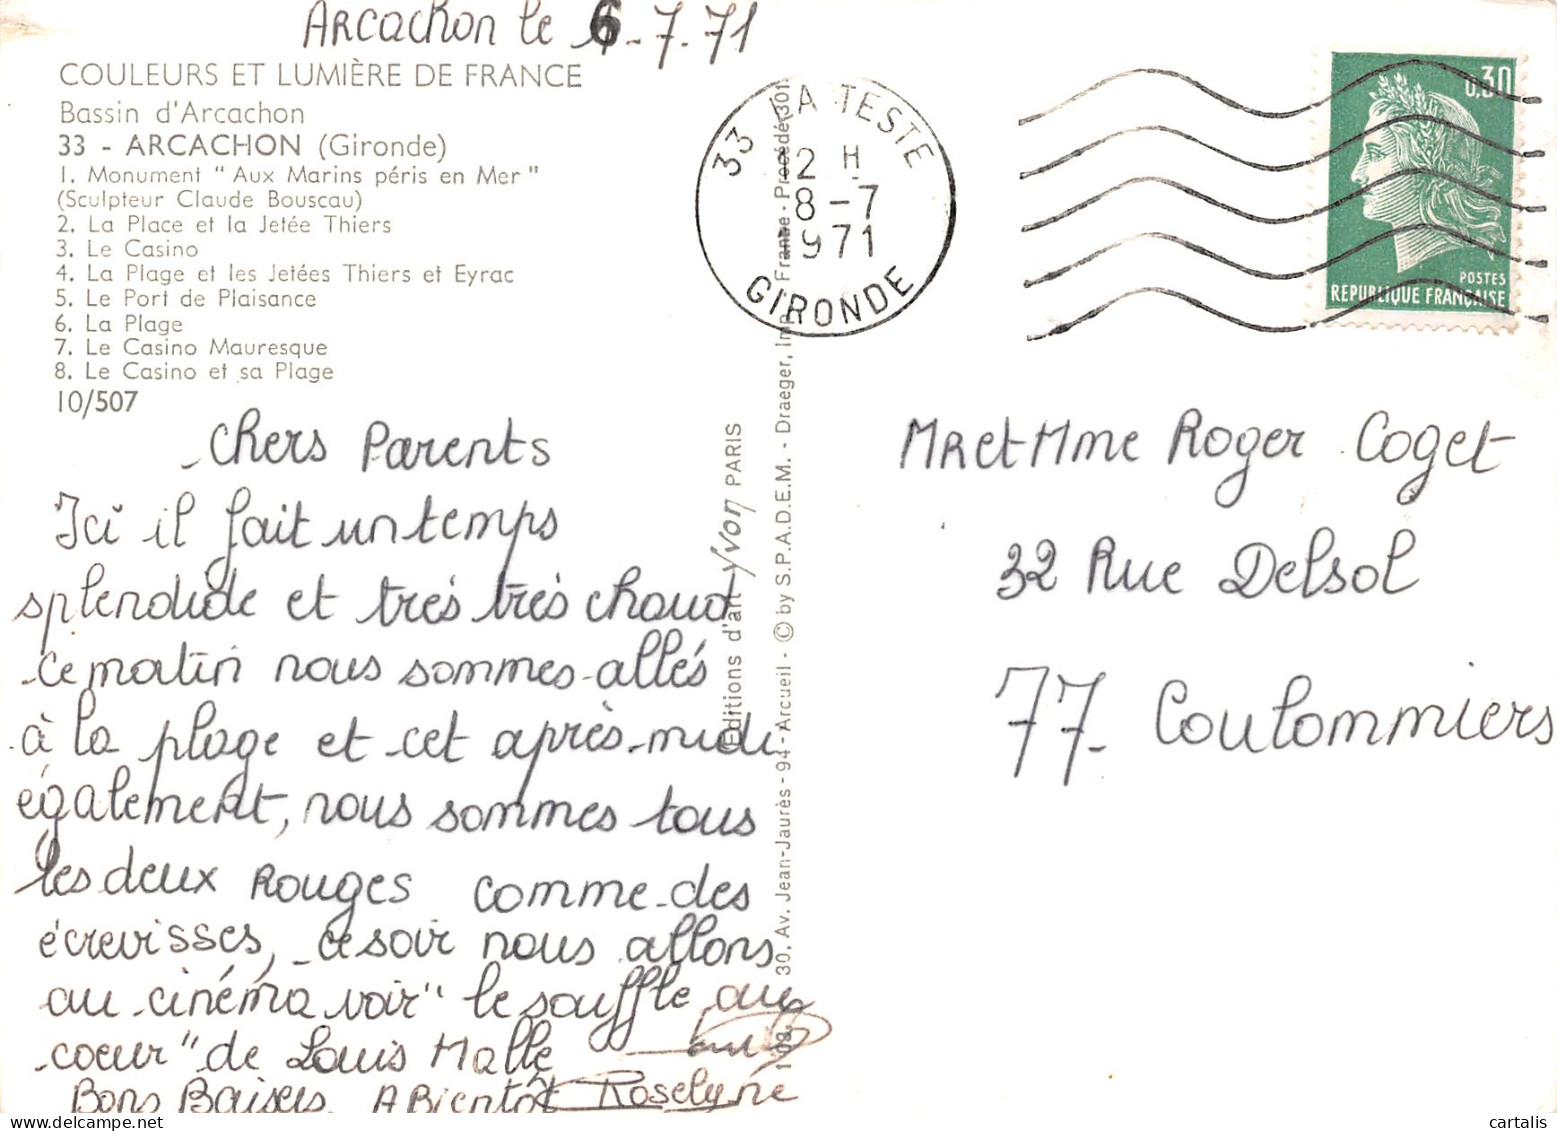 Arcachon le 6-7-71
COULEURS ET LUMIÈRE DE FRANCE
Bassin d'Arcachon
33 - ARCACHON (Gironde)
1. Monument " Aux Marins péris en Mer "
(Sculpteur Claude Bouscau)
2. La Place et la Jetée Thiers
3. Le Casino
4. La Plage et les Jetées Thiers et Eyrac
5. Le Port de Plaisance
6. La Plage
7. Le Casino Mauresque
8. Le Casino et sa Plage
10/507
Chers Parents
Ici il fait un temps
splendide et très très chaud
ce matin nous sommes allés
à la plage et cet après-midi
également, nous sommes tous
les deux rouges comme des
écrevisses, ce soir nous allons
au cinéma voir " le souffle au
coeur " de Louis Malle
Bons Baisers. A Bientôt Roselyne
Editions d'art Yvon PARIS
30, Av. Jean-Jaurès - 94 - Arcueil - © by S.P.A.D.E.M. - Draeger, Imp. France - Procédé 301
33 LA TESTE
12 H
8-7
1971
GIRONDE
0,30
POSTES
REPUBLIQUE FRANÇAISE
Mr et Mme Roger Coget
32 Rue Delsol
77. Coulommiers
cartalis